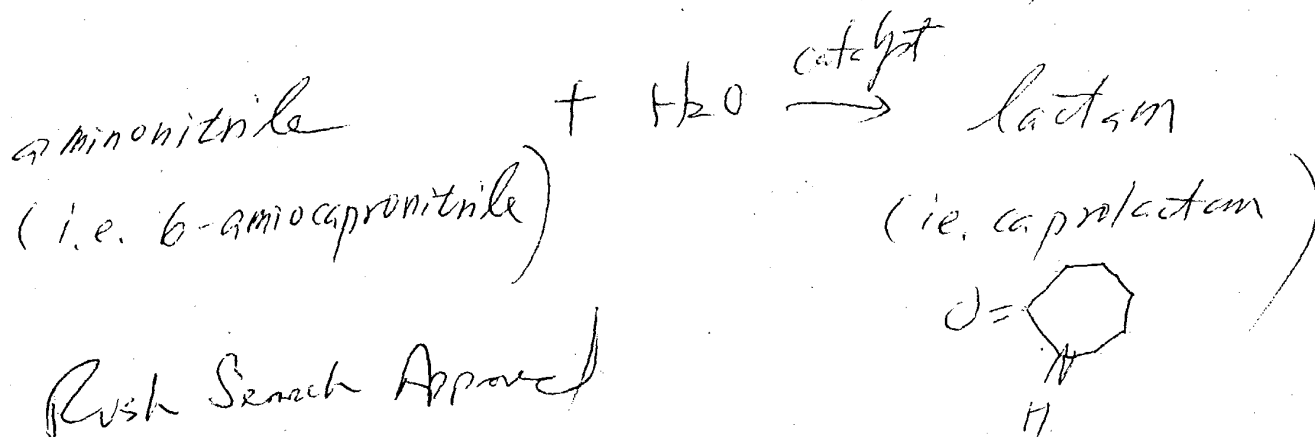 aminonitrile + H2O → catalyst lactam
(i.e. 6-amiocapronitrile) (ie. caprolactam)
O=
N
H
Rush Search Approved